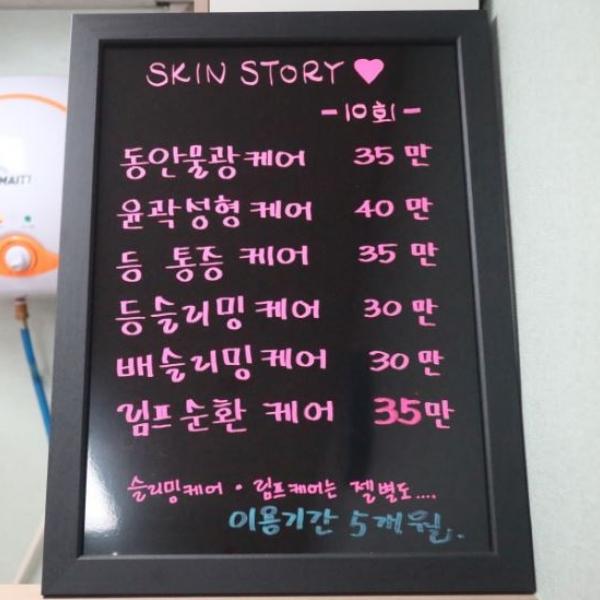 SKIN STORY ♥
- 10회 -
동안물광케어 35만
윤곽성형케어 40만
등 통증 케어 35만
등슬리밍케어 30만
배슬리밍케어 30만
림프순환 케어 35만
슬리밍케어 · 림프케어는 젤별도....
이용기간 5개월.
MAITI